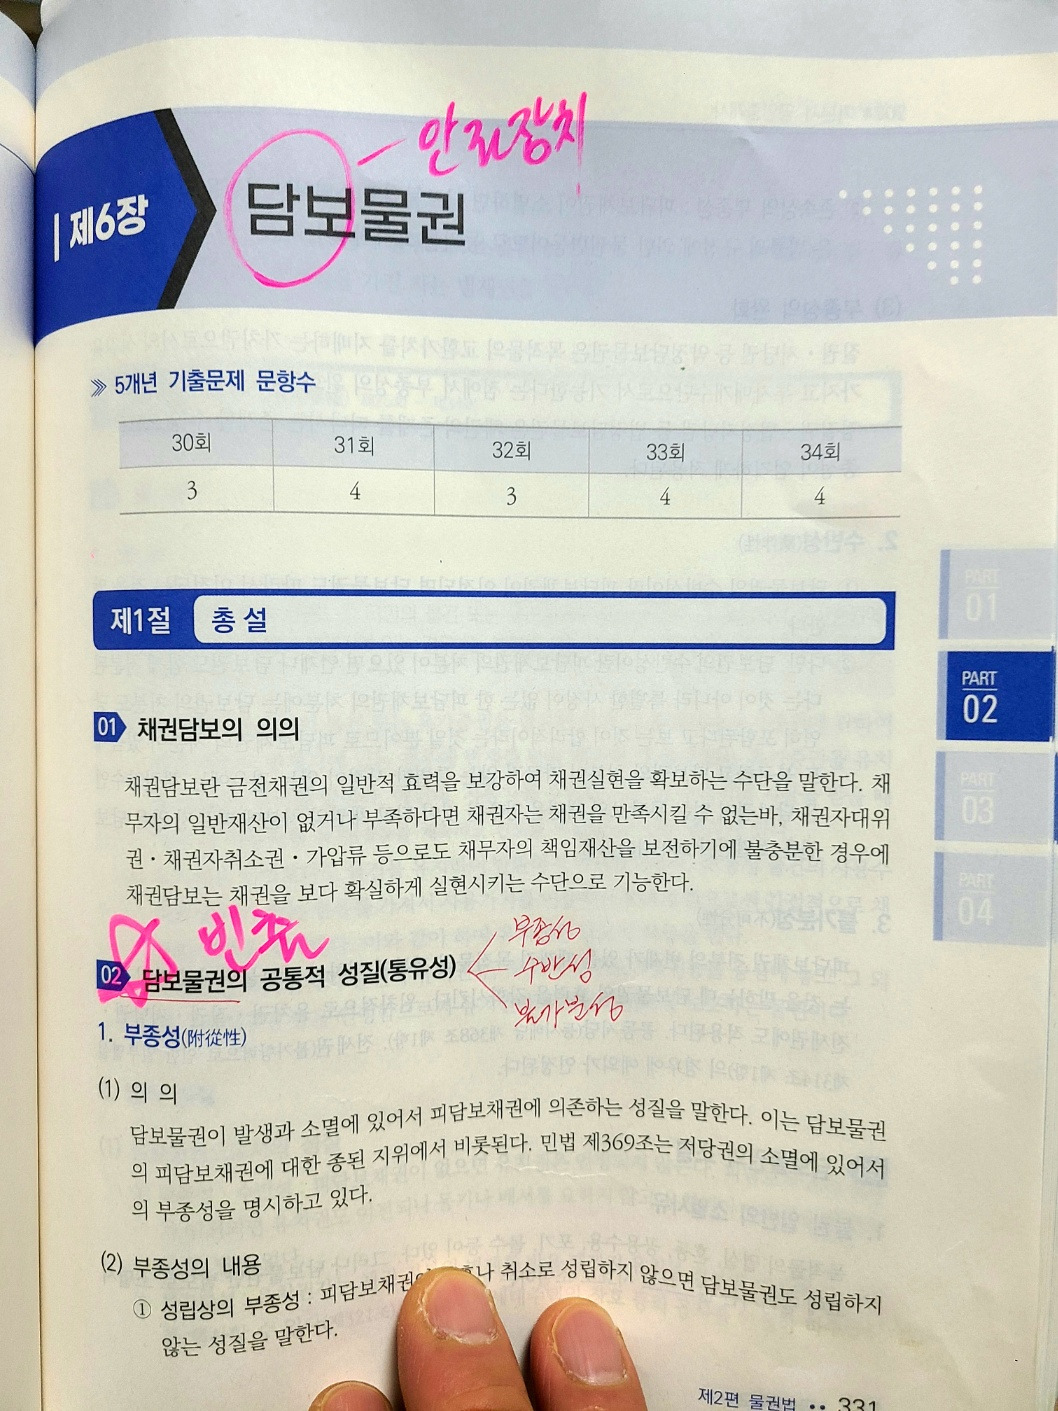 안전장치
제6장 담보물권
5개년 기출문제 문항수
30회 31회 32회 33회 34회
3 4 3 4 4
제1절 총 설
PART 01
PART 02
PART 03
PART 04
01 채권담보의 의의
채권담보란 금전채권의 일반적 효력을 보강하여 채권실현을 확보하는 수단을 말한다. 채
무자의 일반재산이 없거나 부족하다면 채권자는 채권을 만족시킬 수 없는바, 채권자대위
권·채권자취소권·가압류 등으로도 채무자의 책임재산을 보전하기에 불충분한 경우에
채권담보는 채권을 보다 확실하게 실현시키는 수단으로 기능한다.
빈출
02 담보물권의 공통적 성질(통유성)
부종성
수반성
불가분성
1. 부종성(附從性)
(1) 의 의
담보물권이 발생과 소멸에 있어서 피담보채권에 의존하는 성질을 말한다. 이는 담보물권
의 피담보채권에 대한 종된 지위에서 비롯된다. 민법 제369조는 저당권의 소멸에 있어서
의 부종성을 명시하고 있다.
(2) 부종성의 내용
① 성립상의 부종성 : 피담보채권이 취소로 성립하지 않으면 담보물권도 성립하지
않는 성질을 말한다.
제2편 물권법 •• 331